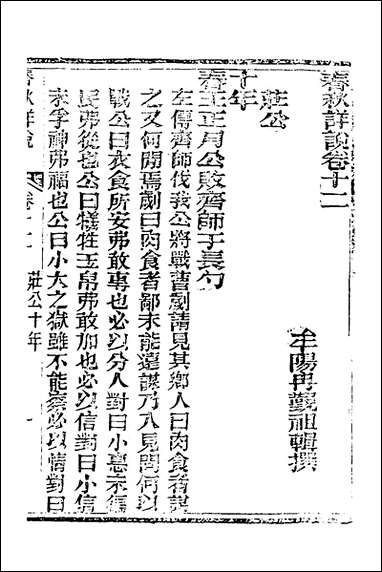 春秋詳說卷十二
牟陽冉覲祖輯撰
莊公
十年
春王正月公敗齊師于長勺
左傳齊師伐我公將戰曹劌請見其鄉人曰肉食者謀
之又何間焉劌曰肉食者鄙未能遠謀乃入見問何以
戰公曰衣食所安弗敢專也必以分人對曰小惠未徧
民弗從也公曰犧牲玉帛弗敢加也必以信對曰小信
未孚神弗福也公曰小大之獄雖不能察必以情對曰
春秋詳說
卷十二
莊公十年
一